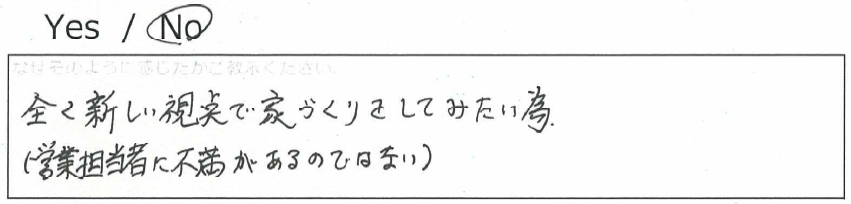 Yes / No
なぜそのように感じたかご教示ください。
全く新しい視点で家づくりをしてみたい為.
(営業担当者に不満があるのではない)